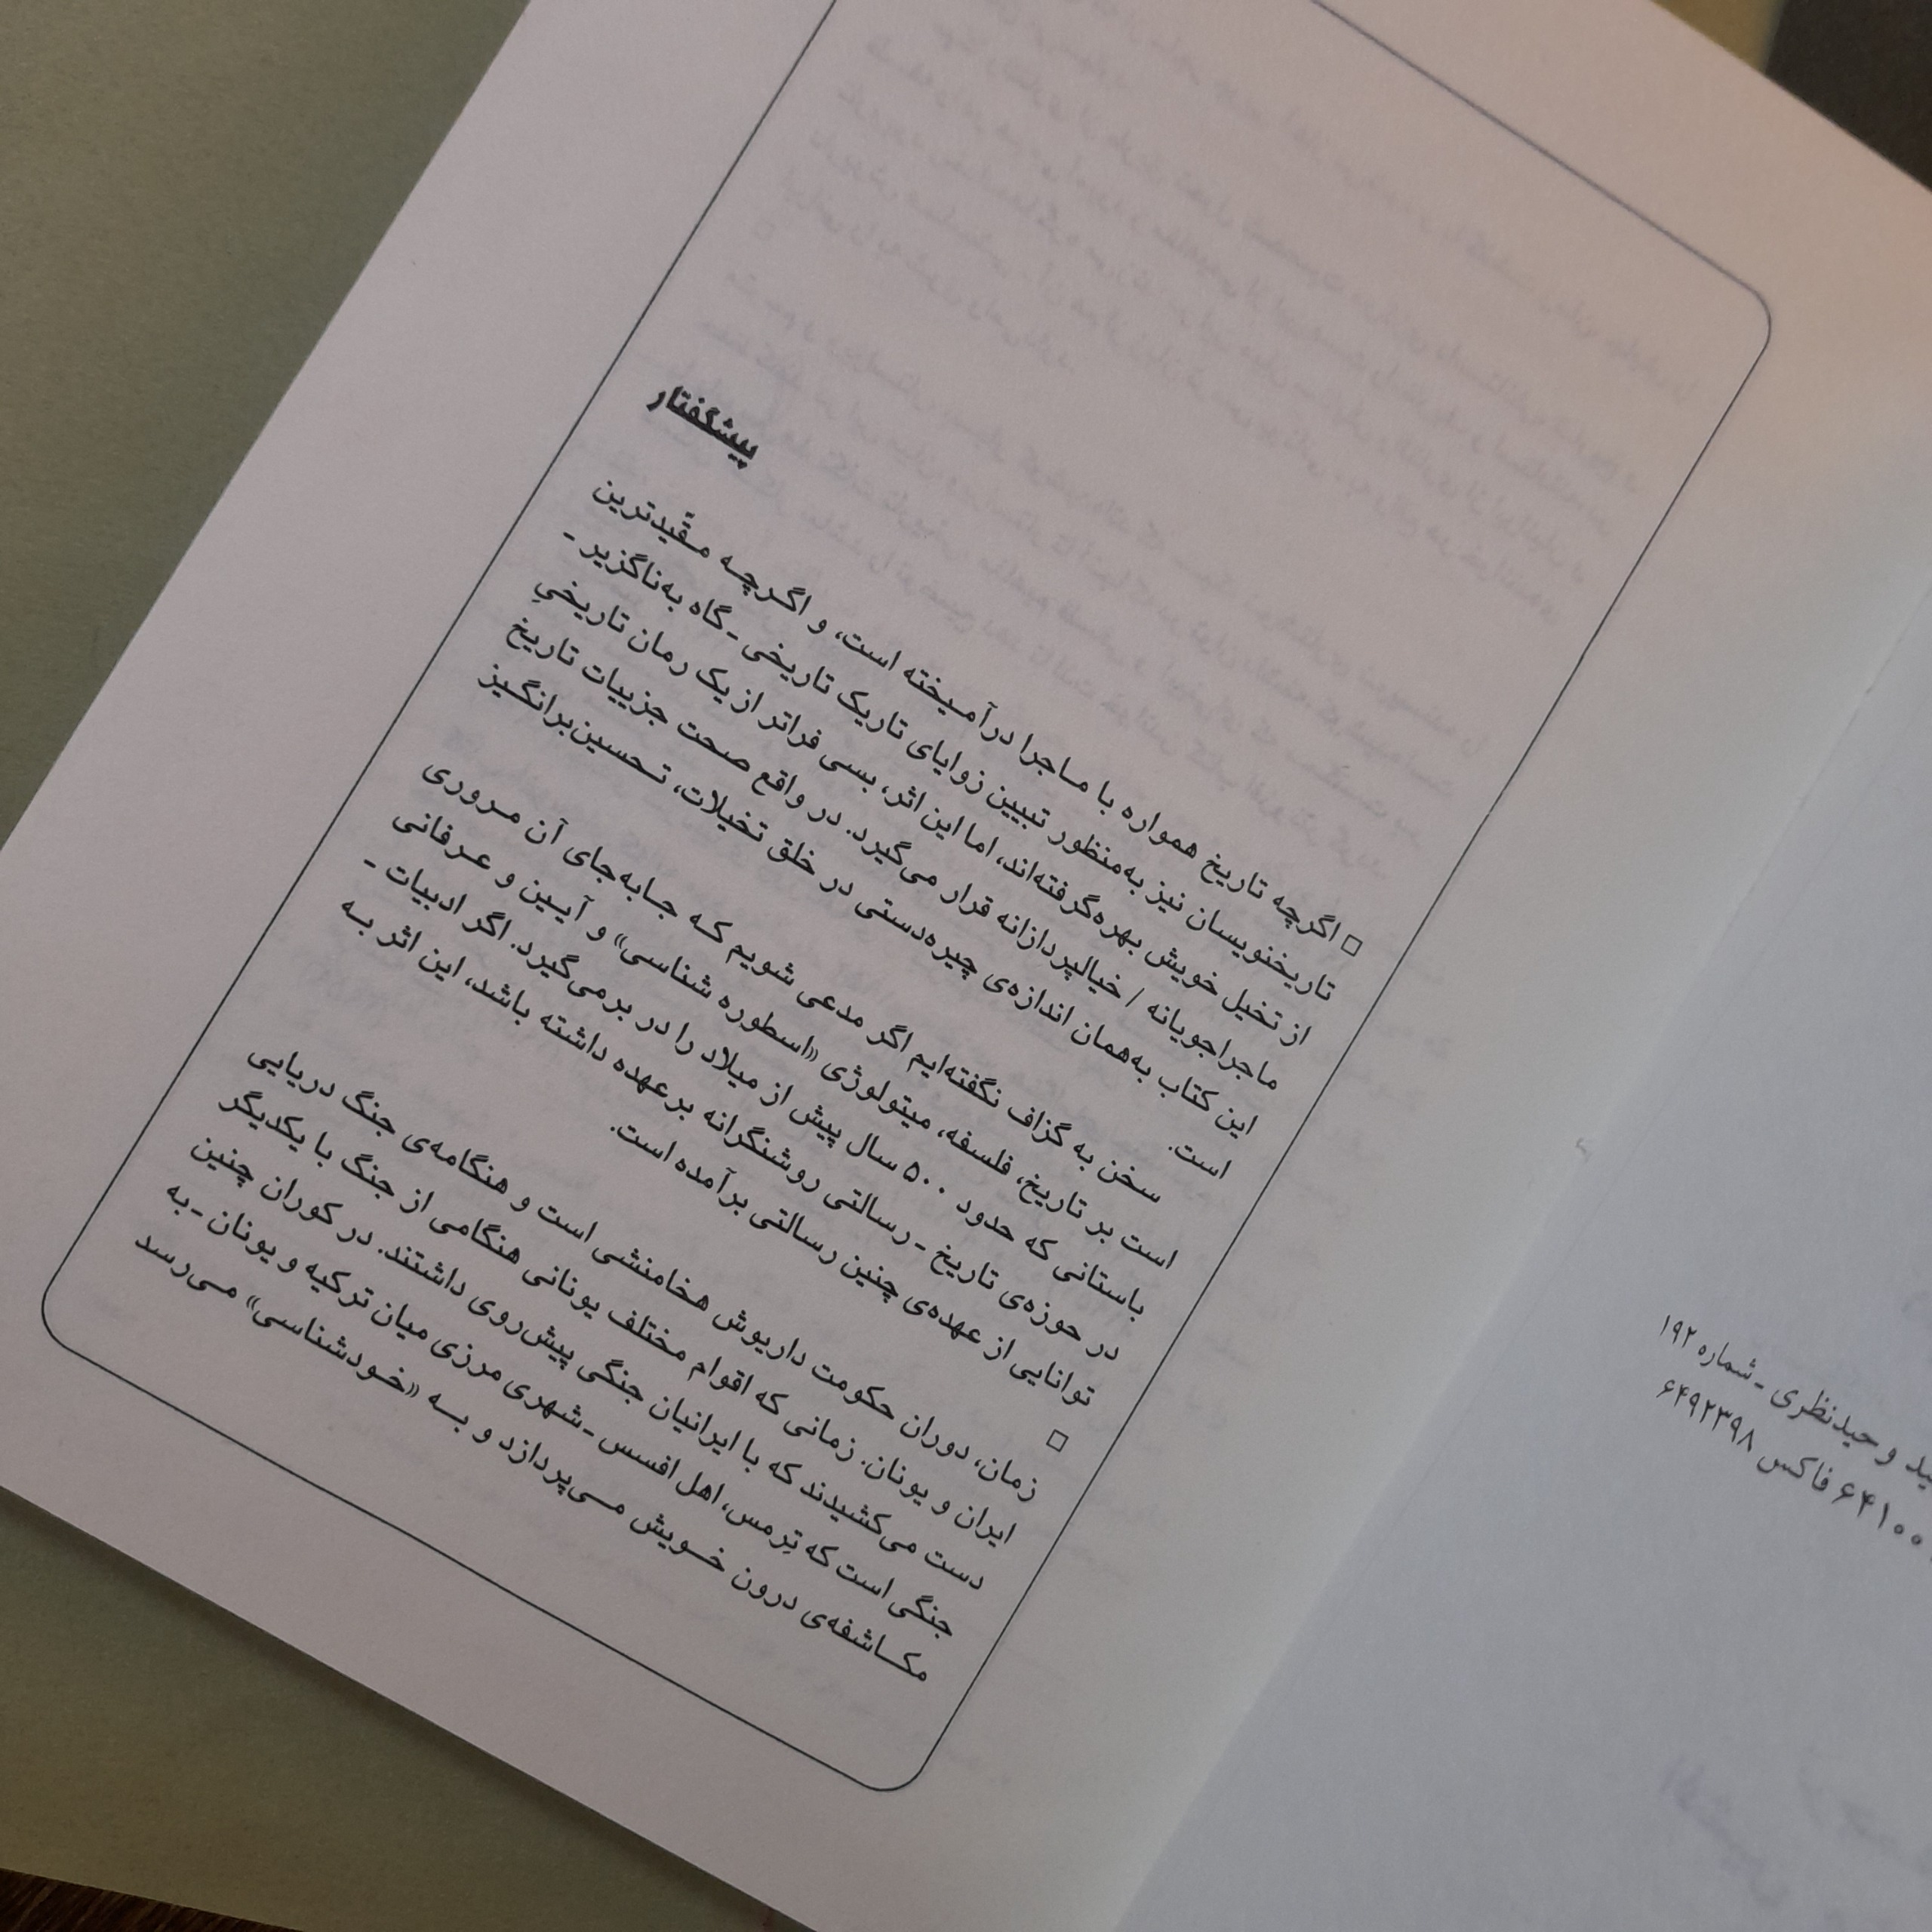 پیشگفتار
□ اگرچه تاریخ همواره با ماجرا درآمیخته است، و اگرچه مقّیدترین
تاریخنویسان نیز به‌منظور تبیین زوایای تاریک تاریخی - گاه به‌ناگزیر -
از تخیل خویش بهره‌گرفته‌اند، اما این اثر، بسی فراتر از یک رمان تاریخیِ
ماجراجویانه / خیالپردازانه قرار می‌گیرد. در واقع صحت جزییات تاریخ
این کتاب به‌همان اندازه‌ی چیره‌دستی در خلق تخیلات، تحسین‌برانگیز
است.
سخن به گزاف نگفته‌ایم اگر مدعی شویم که جابه‌جای آن مروری
است بر تاریخ، فلسفه، میتولوژی «اسطوره شناسی» و آیین و عرفانی
باستانی که حدود ۵۰۰ سال پیش از میلاد را در برمی‌گیرد. اگر ادبیات -
در حوزه‌ی تاریخ - رسالتی روشنگرانه برعهده داشته باشد، این اثر به
توانایی از عهده‌ی چنین رسالتی برآمده است.
□
زمان، دوران حکومت داریوش هخامنشی است و هنگامه‌ی جنگ دریایی
ایران و یونان. زمانی که اقوام مختلف یونانی هنگامی از جنگ با یکدیگر
دست می‌کشیدند که با ایرانیان جنگی پیش‌روی داشتند. در کوران چنین
جنگی است که تِرمس، اهل افسس - شهری مرزی میان ترکیه و یونان - به
مکاشفه‌ی درون خویش می‌پردازد و به «خودشناسی» می‌رسد
وحیدنظری - شماره ۱۹۲
فاکس ۶۴۹۲۳۹۸